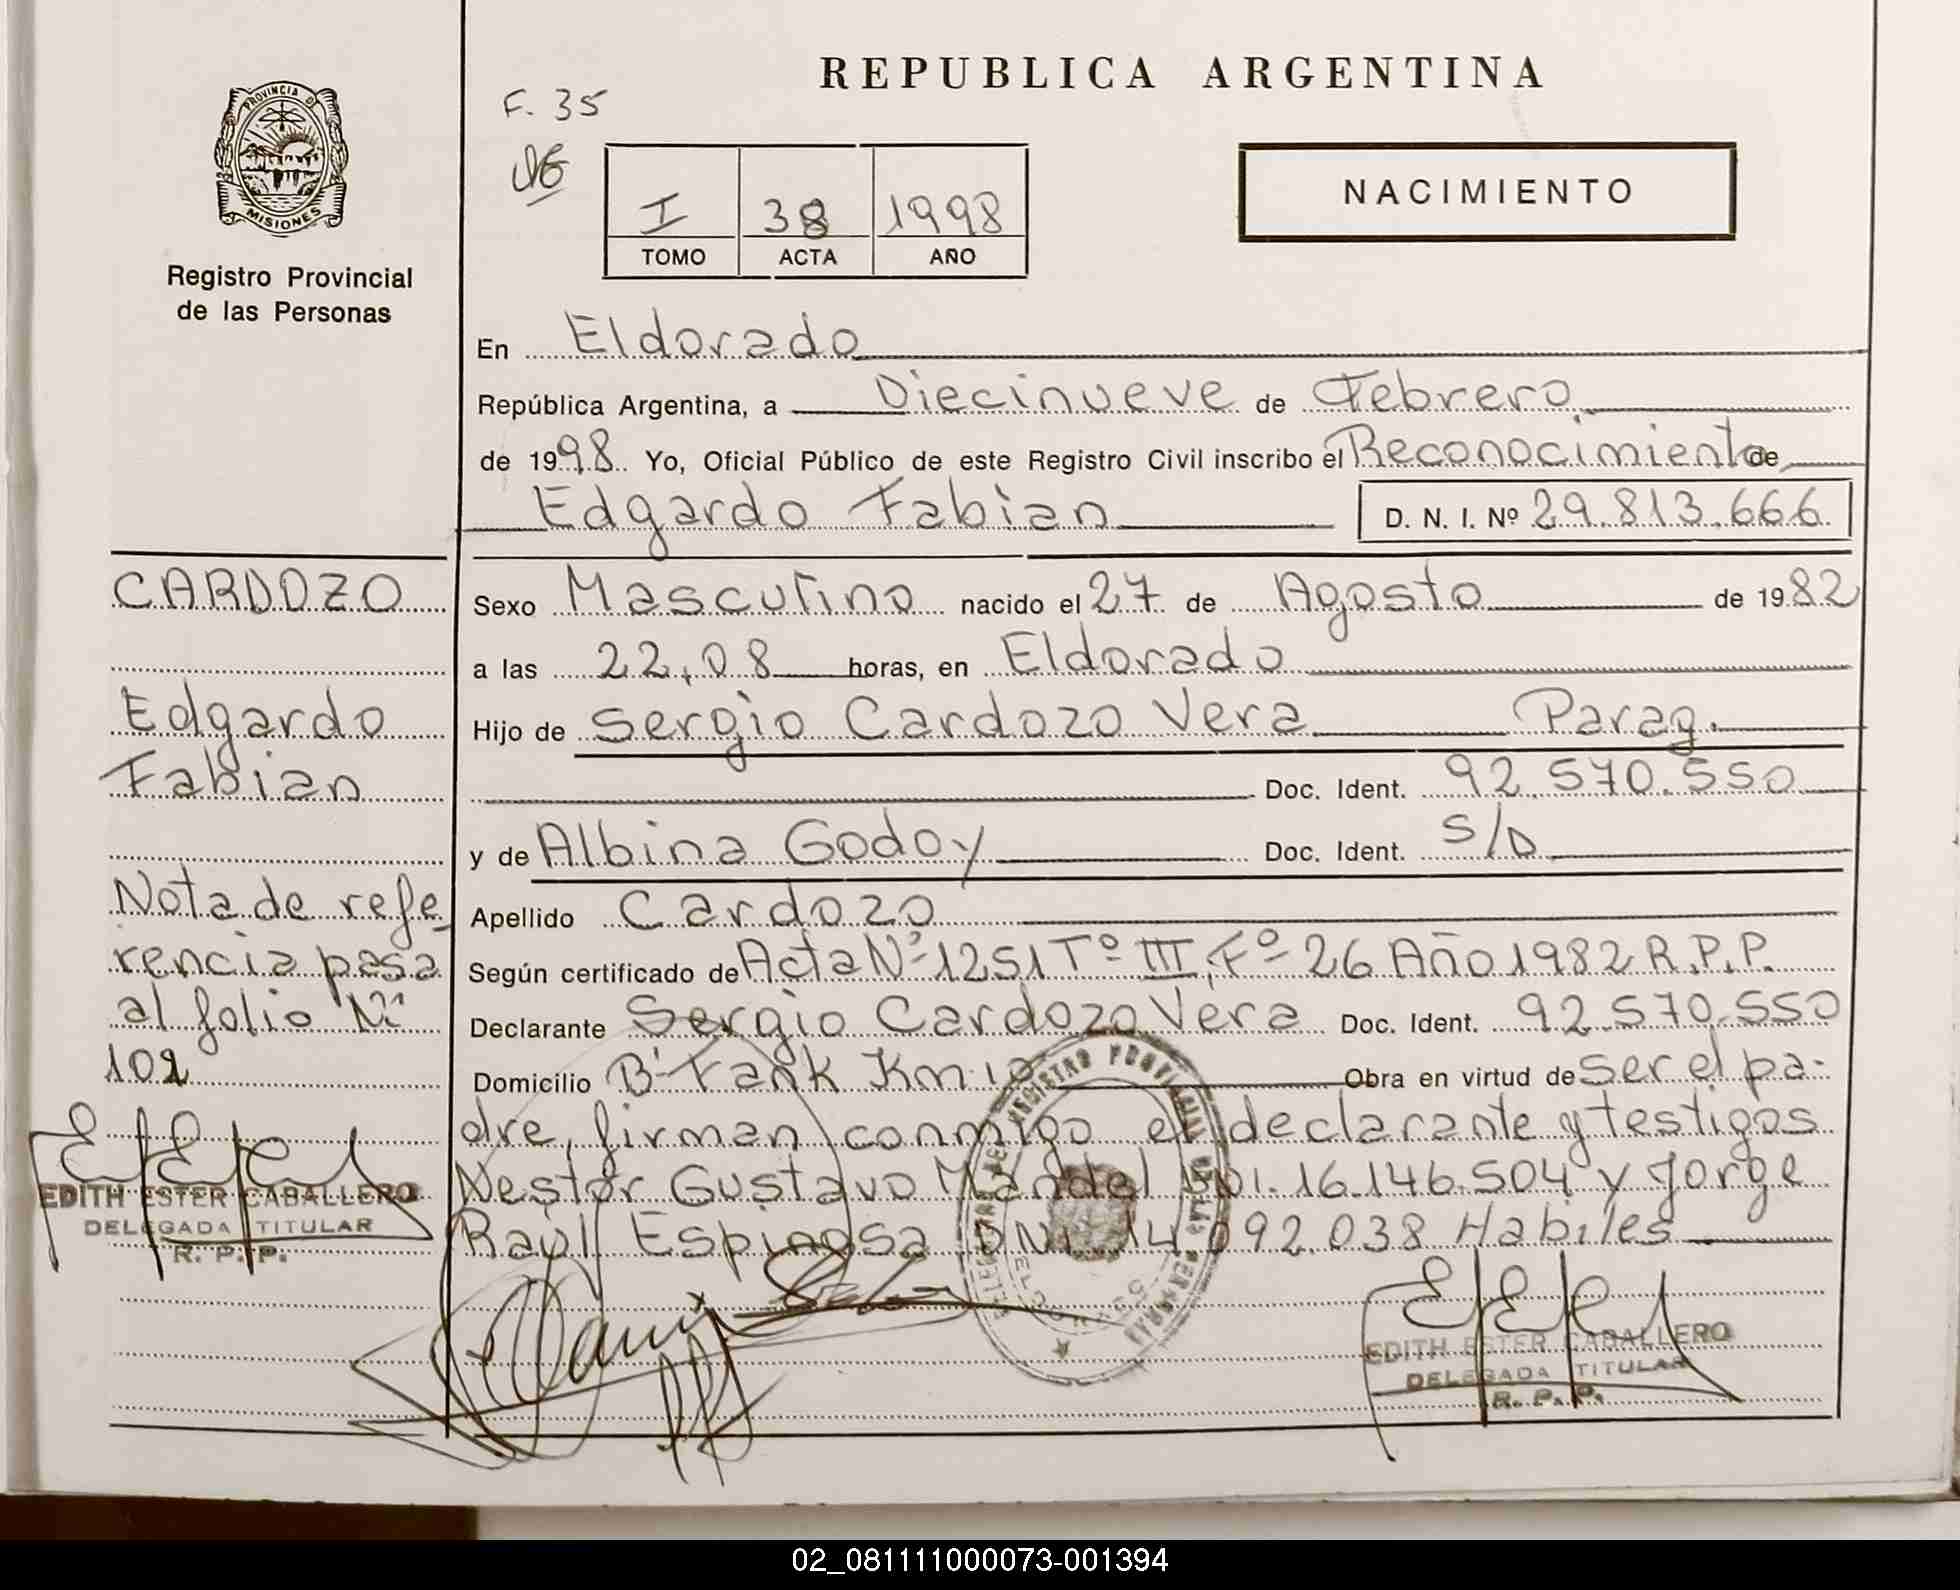 REPUBLICA ARGENTINA
F. 35
PROVINCIA DE
MISIONES
Registro Provincial
de las Personas
I 38 1998
TOMO ACTA AÑO
NACIMIENTO
En Eldorado
República Argentina, a Diecinueve de Febrero
de 1998. Yo, Oficial Público de este Registro Civil inscribo el Reconocimiento de
Edgardo Fabian D. N. I. Nº 29.813.666
CARDOZO
Edgardo
Fabian
Nota de refe
rencia pasa
al folio Nº
102
EDITH ESTER CABALLERO
DELEGADA TITULAR
R. P. P.
Sexo Masculino nacido el 27 de Agosto de 1982
a las 22,08 horas, en Eldorado
Hijo de Sergio Cardozo Vera Parag.
Doc. Ident. 92.570.550
y de Albina Godoy Doc. Ident. S/D
Apellido Cardozo
Según certificado de Acta Nº 1251 Tº III, Fº 26 Año 1982 R.P.P.
Declarante Sergio Cardozo Vera Doc. Ident. 92.570.550
Domicilio Bº Tank Km 10 Obra en virtud de ser el pa-
dre, firman conmigo el declarante y testigos
Nestor Gustavo Mandel DNI. 16.146.504 y Jorge
Raúl Espinosa DNI. 14.092.038 Habiles
EDITH ESTER CABALLERO
DELEGADA TITULAR
R. P. P.
02_081111000073-001394